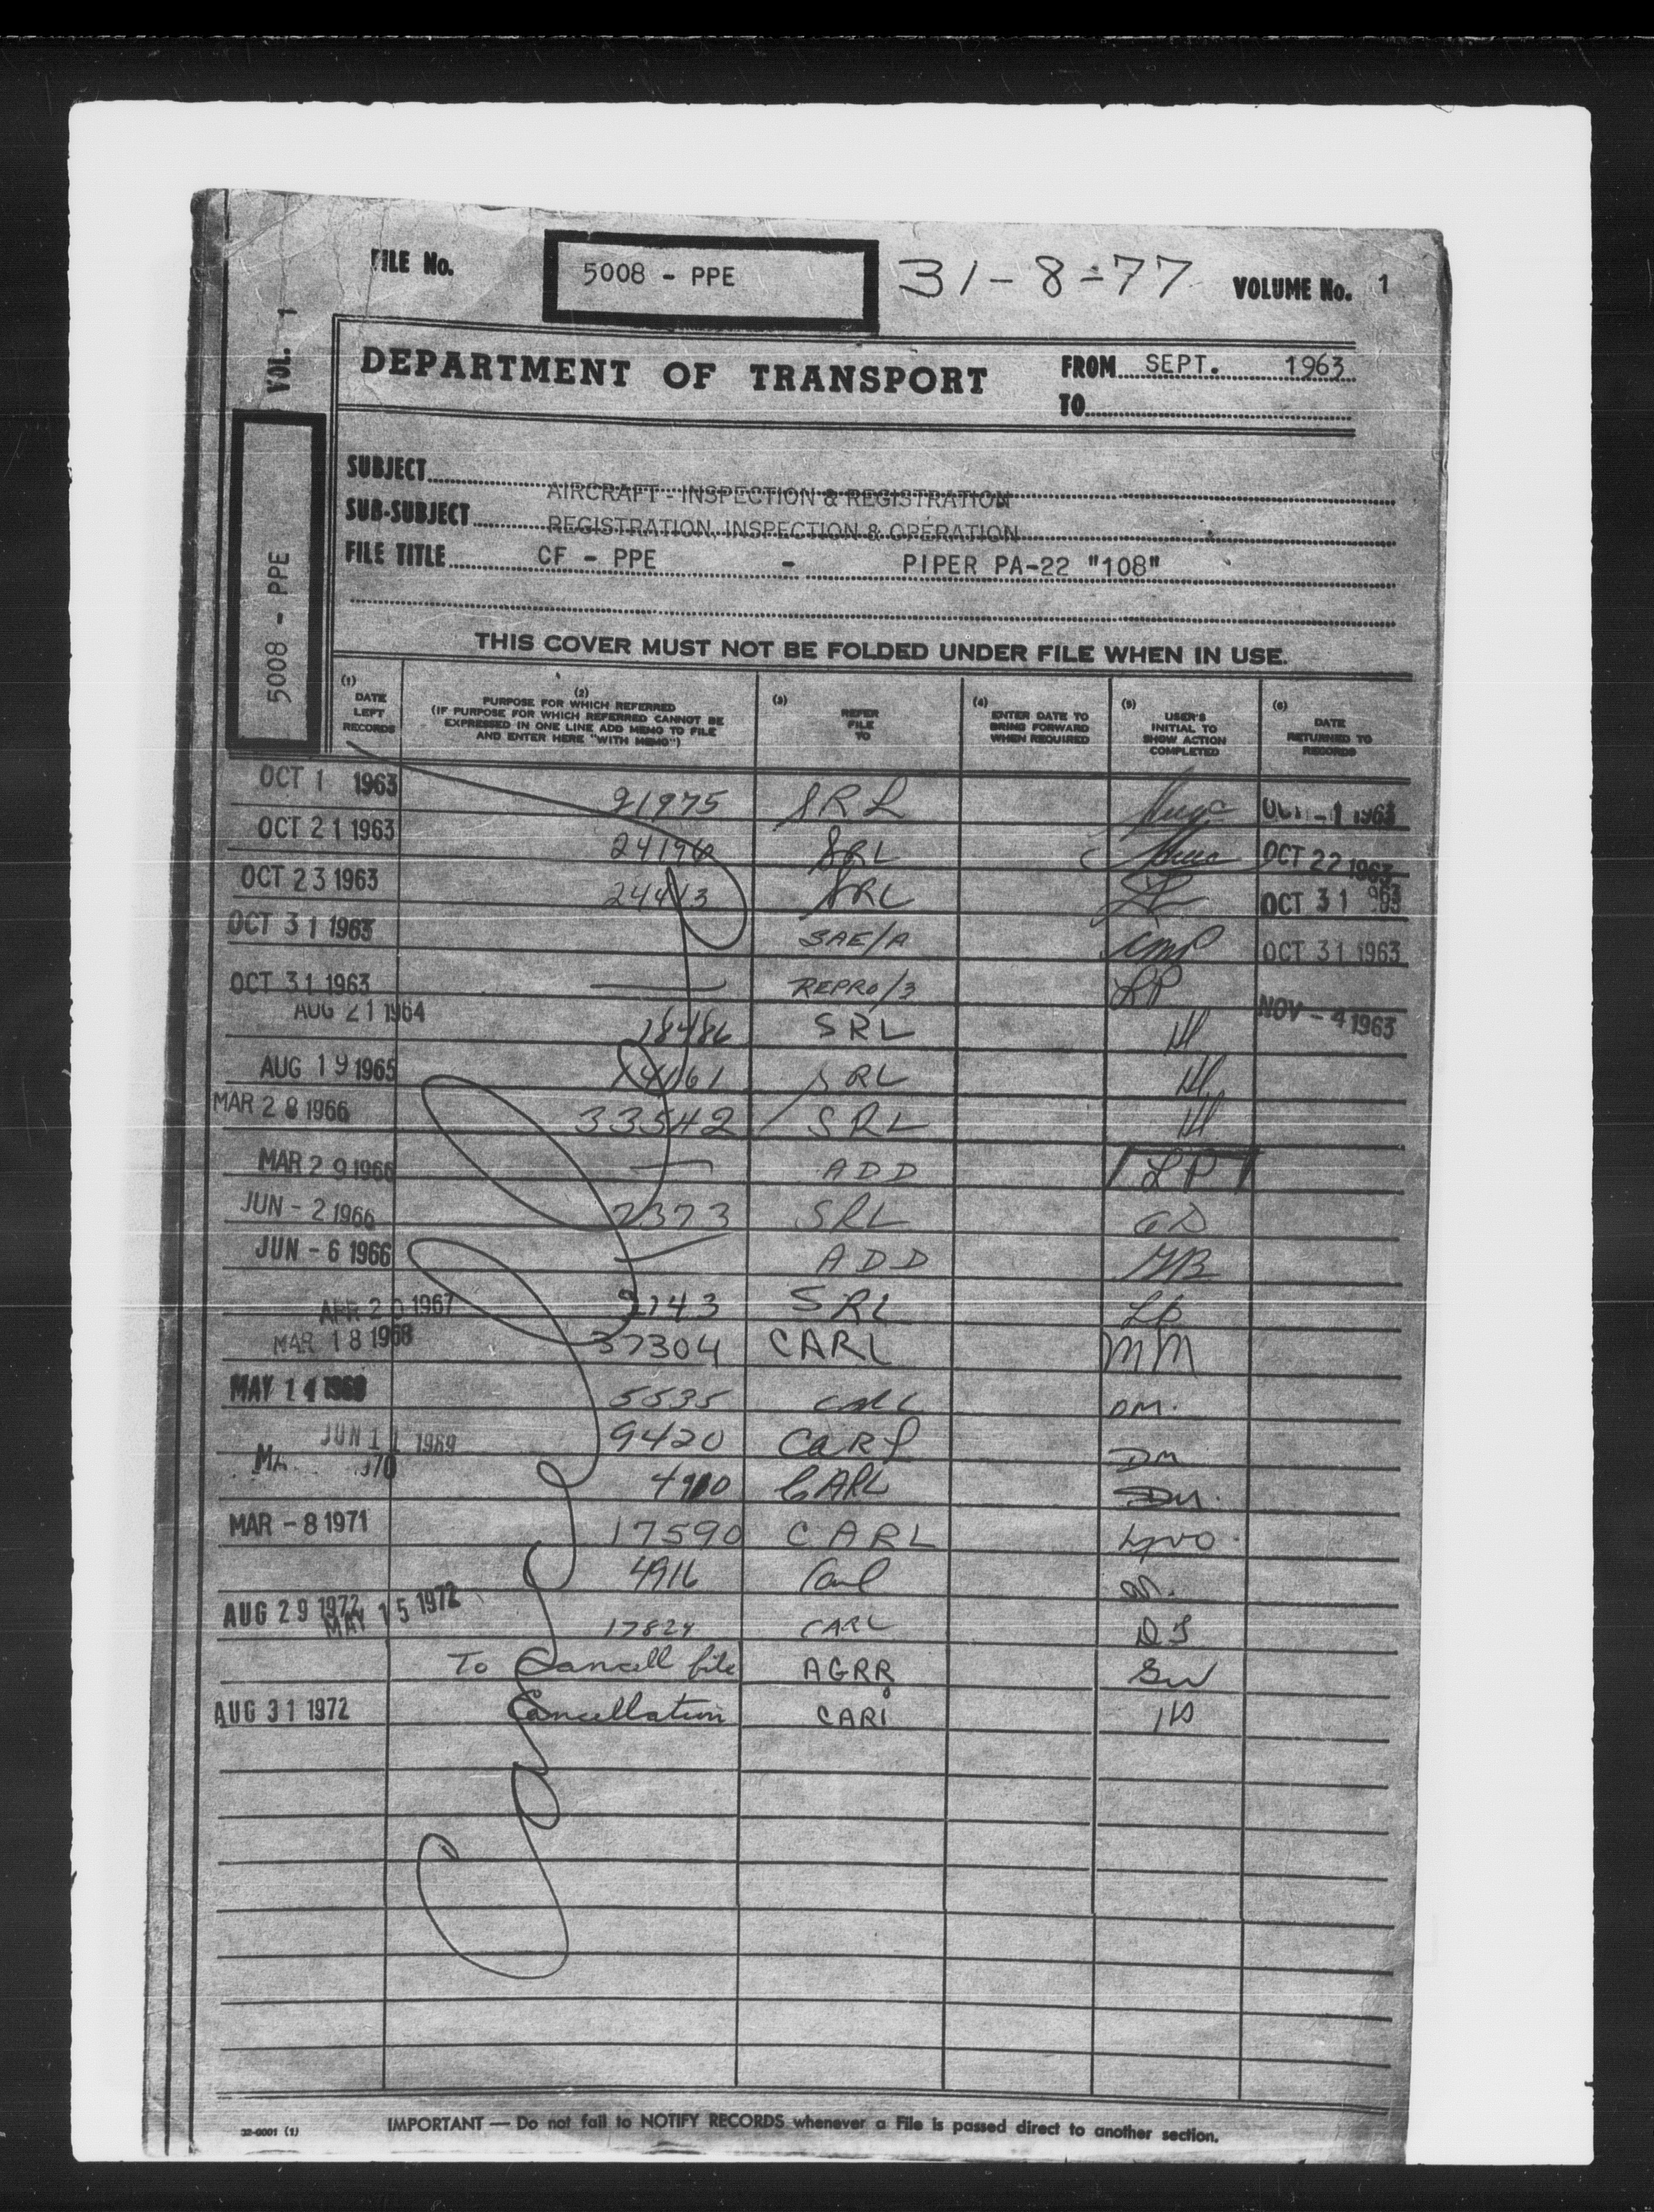 FILE No. 5008 - PPE 31-8-77 VOLUME No. 1
VOL. 1
5008 - PPE
DEPARTMENT OF TRANSPORT
FROM SEPT. 1963
TO
SUBJECT AIRCRAFT - INSPECTION & REGISTRATION
SUB-SUBJECT REGISTRATION, INSPECTION & OPERATION
FILE TITLE CF - PPE - PIPER PA-22 "108"
THIS COVER MUST NOT BE FOLDED UNDER FILE WHEN IN USE.
(1) DATE LEFT RECORDS
(2) PURPOSE FOR WHICH REFERRED
(IF PURPOSE FOR WHICH REFERRED CANNOT BE
EXPRESSED IN ONE LINE ADD MEMO TO FILE
AND ENTER HERE "WITH MEMO")
(3) REFER FILE TO
(4) ENTER DATE TO BRING FORWARD WHEN REQUIRED
(5) USER'S INITIAL TO SHOW ACTION COMPLETED
(6) DATE RETURNED TO RECORDS
OCT 1 1963 21975 SRL OCT -1 1963
OCT 21 1963 24196 SRL OCT 22 1963
OCT 23 1963 24413 SRL OCT 31 1963
OCT 31 1963 SAE/A OCT 31 1963
OCT 31 1963 — REPRO/3 LP NOV - 4 1963
AUG 21 1964 18486 SRL
AUG 19 1965 SRL
MAR 28 1966 33542 SRL
MAR 29 1966 — ADD LP
JUN - 2 1966 7373 SRL GD
JUN - 6 1966 — ADD
APR 20 1967 2143 SRL
MAR 18 1968 37304 CARL MM
MAY 14 1969 5535 CARL DM.
JUN 11 1969 9420 CARL DM
4910 CARL DM.
MAR - 8 1971 17590 CARL
MAY 15 1972 4916 Carl
AUG 29 1972 17824 CARL
To Cancell file AGRR
AUG 31 1972 Cancellation CARL
32-0001 (1)
IMPORTANT — Do not fail to NOTIFY RECORDS whenever a File is passed direct to another section.